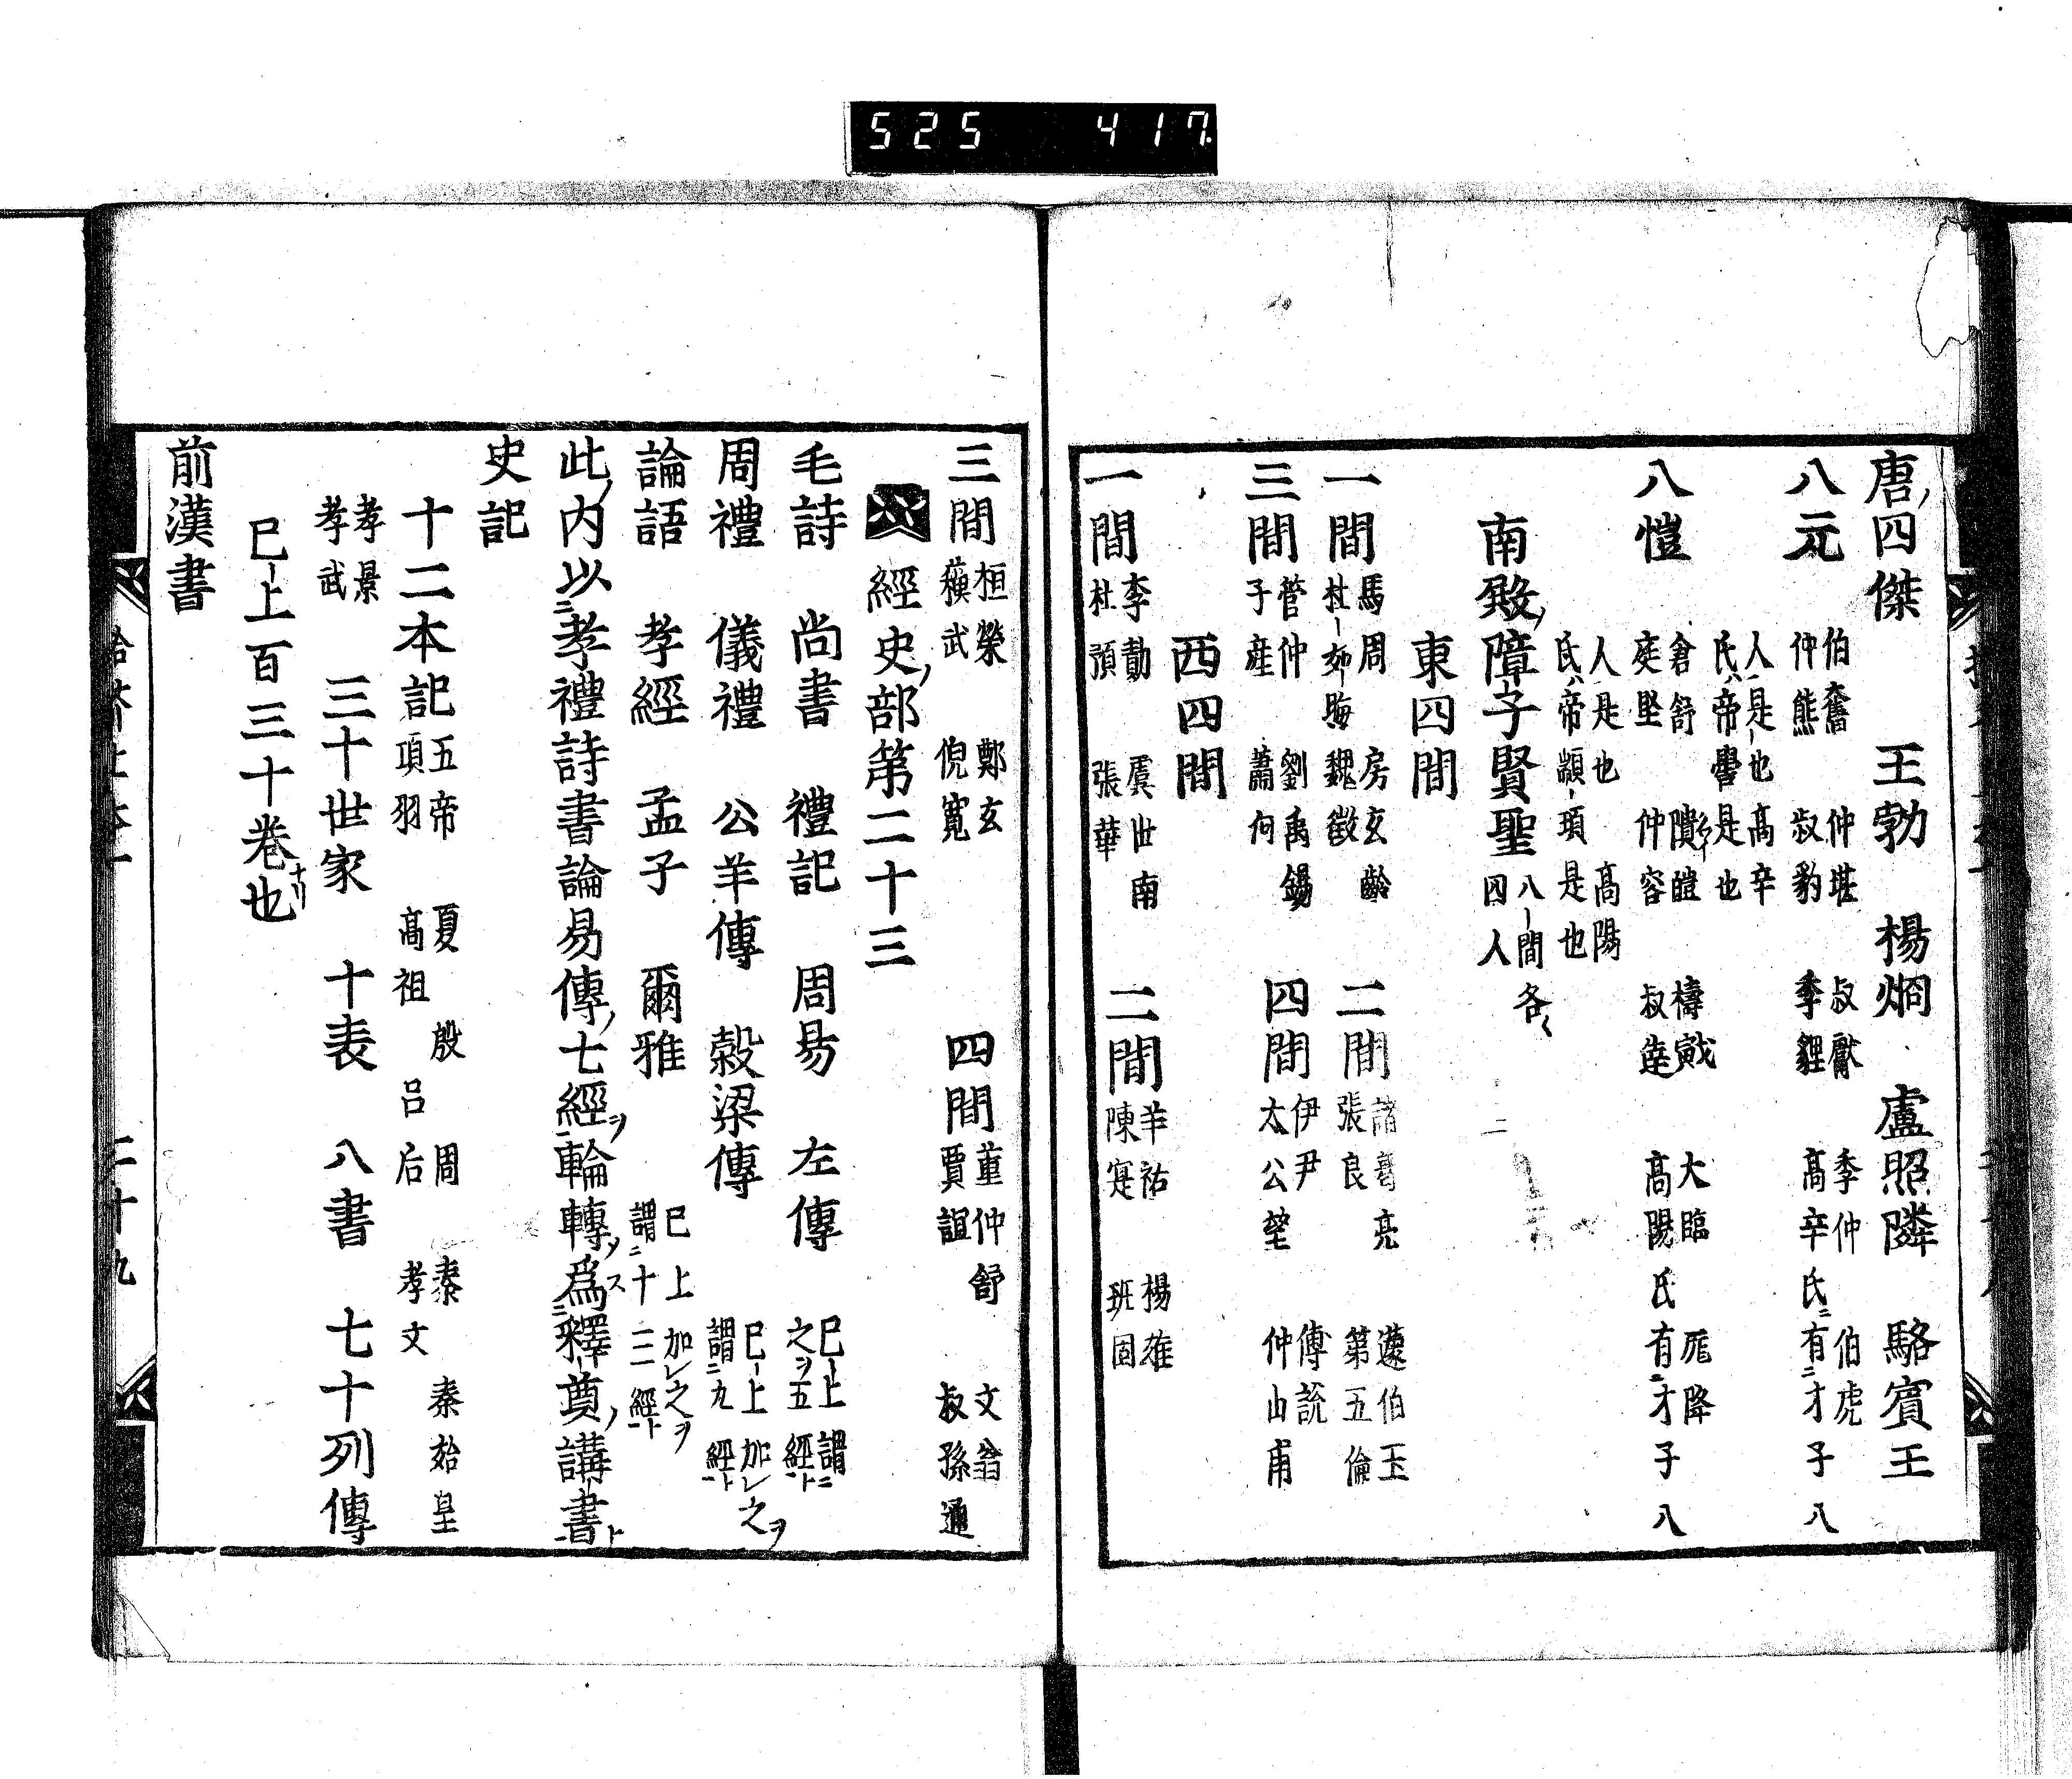 525 417
唐四傑 王勃 楊烱 盧照隣 駱賓王
八元 伯奮 仲堪 叔獻 季仲 伯虎
仲熊 叔豹 季貍 高辛氏有才子八
人是也高辛
氏帝嚳是也
八愷 倉舒 隤敳 檮戭 大臨 厖降
庭堅 仲容 叔達 高陽氏有才子八
人是也 高陽
氏帝顓頊是也
南殿障子賢聖 八間各
四人
東四間
一間 馬周 房玄齡
杜如晦 魏徵
二間 諸葛亮 蘧伯玉
張良 第五倫
三間 管仲 劉禹錫
子產 蕭何
四間 伊尹 傅説
太公望 仲山甫
西四間
一間 李勣 虞世南
杜預 張華
二間 羊祜 楊雄
陳寔 班固
三間 桓榮 鄭玄
蘓武 倪寬
四間 董仲舒 文翁
賈誼 叔孫通
經史部第二十三
毛詩 尚書 禮記 周易 左傳 巳上謂二
之ヲ五經ト
周禮 儀禮 公羊傳 穀梁傳 巳上加レ之ヲ
謂二九經ト
論語 孝經 孟子 爾雅 巳上加レ之ヲ
謂二十三經ト
此内以二孝禮詩書論易傳七經ヲ一輪轉ソ爲ス二釋奠講書ト一
史記
十二本記 五帝 夏 殷 周 秦 秦始皇
項羽 高祖 呂后 孝文
孝景
孝武
三十世家 十表 八書 七十列傳
巳上百三十卷也
前漢書
二十九